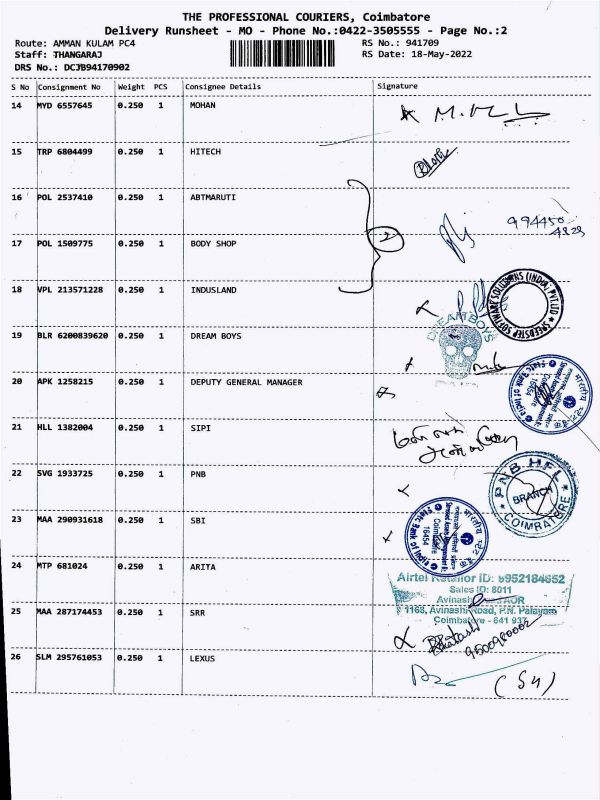 THE PROFESSIONAL COURIERS, Coimbatore
Delivery Runsheet - MO - Phone No.:0422-3505555 - Page No.:2
Route: AMMAN KULAM PC4 RS No.: 941709
Staff: THANGARAJ RS Date: 18-May-2022
DRS No.: DCJB94170902
S No Consignment No Weight PCS Consignee Details Signature
14 MYD 6557645 0.250 1 MOHAN
15 TRP 6804499 0.250 1 HITECH
16 POL 2537410 0.250 1 ABTMARUTI
994450
4828
17 POL 1509775 0.250 1 BODY SHOP
2
18 VPL 213571228 0.250 1 INDUSLAND
SPEEDSTEP SOFTWARE SOLUTIONS (INDIA) PVT.LTD
19 BLR 6200839620 0.250 1 DREAM BOYS
DREAM BOYS
20 APK 1258215 0.250 1 DEPUTY GENERAL MANAGER
State Bank of India
Coimbatore
16454
21 HLL 1382004 0.250 1 SIPI
22 SVG 1933725 0.250 1 PNB
PNB HFL
BRANCH
COIMBATORE
23 MAA 290931618 0.250 1 SBI
State Bank of India
Coimbatore
16454
24 MTP 681024 0.250 1 ARITA
Airtel Retailor ID: 9952184652
Sales ID: 8011
Avinashi
1168, Avinashi Road, P.N. Palayam
Coimbatore - 641 937
25 MAA 287174453 0.250 1 SRR
9500980002
26 SLM 295761053 0.250 1 LEXUS